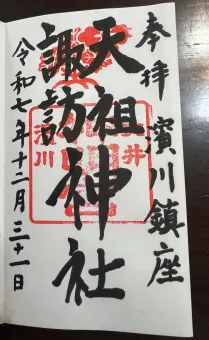 奉拝 濱川鎮座
天祖神社
諏訪
令和七年十二月三十一日
濱川
井